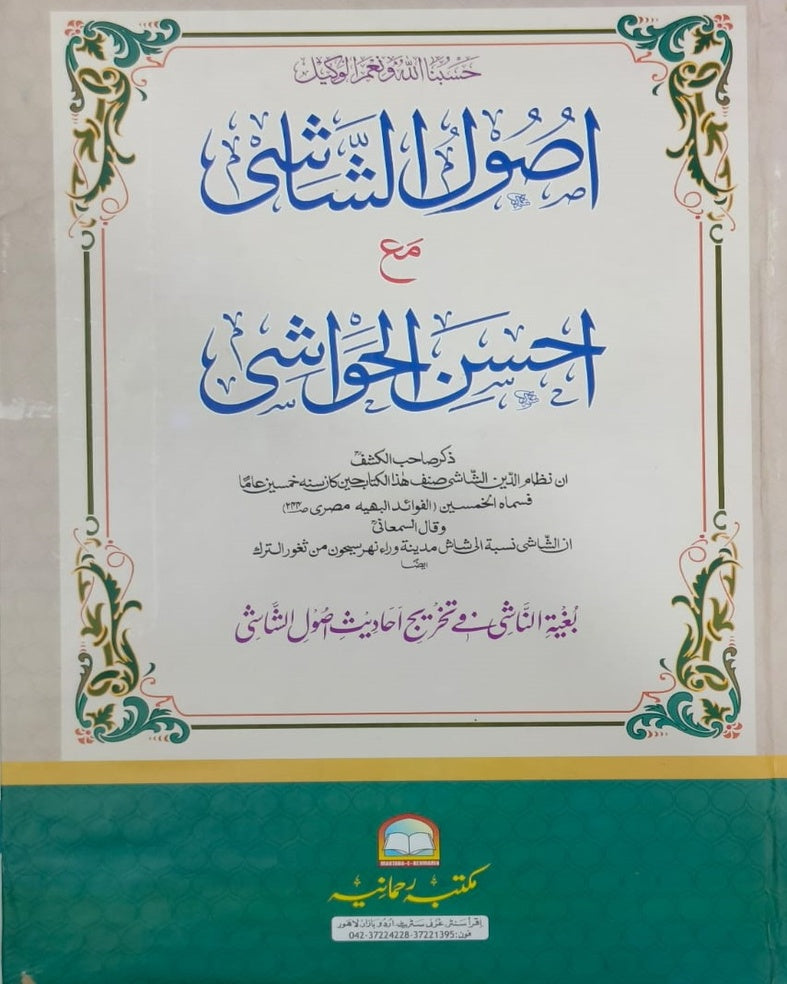 حَسْبُنَا اللّٰهُ وَنِعْمَ الْوَكِيل
اُصُوْلُ الشَّاشِی
مَع
اَحْسَنُ الْحَوَاشِی
ذکر صاحب الکشف
ان نظام الدین الشاشی صنف هٰذا الکتاب حین کان سنه خمسین عامًا
فسماه الخمسین (الفوائد البهیه مصری ص۲۴۴)
وقال السمعانی
ان الشّاشی نسبة الی شاش مدینة وراء نهر سیحون من ثغور الترک
ایضًا
بُغْیَةُ النَّاشِی فِی تَخْرِیْجِ اَحَادِیْثِ اُصُوْلِ الشَّاشِی
MAKTABA-E-REHMANIA
مکتبہ رحمانیہ
اِقرأ سنٹر غزنی سٹریٹ اُردو بازار لاہور
فون:042-37224228-37221395